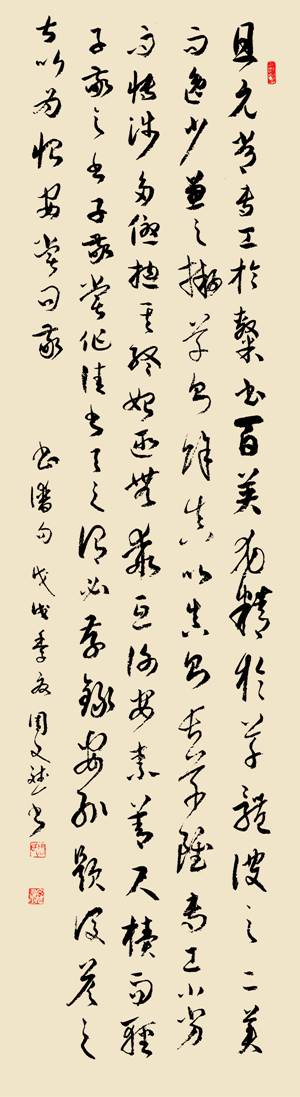 且元常專工於隸書百英尤精於草體彼之二美
而逸少兼之擬草則餘真比真則長草雖專工小劣
而博涉多優總其終始匪無乖互謝安素善尺牘而輕
子敬之書子敬嘗作佳書與之謂必存錄安輒題後答之
甚以為恨安嘗問敬
書譜句 戊戌季夏周文斌書